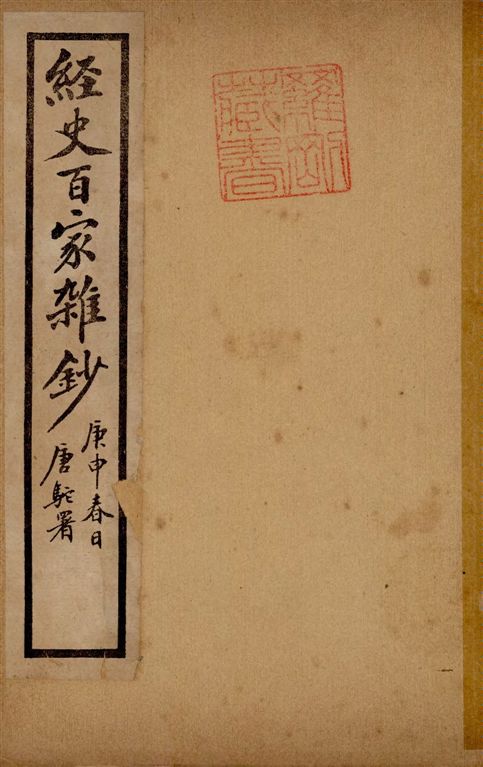 経史百家雜鈔
庚申春日
唐駝署
藏書